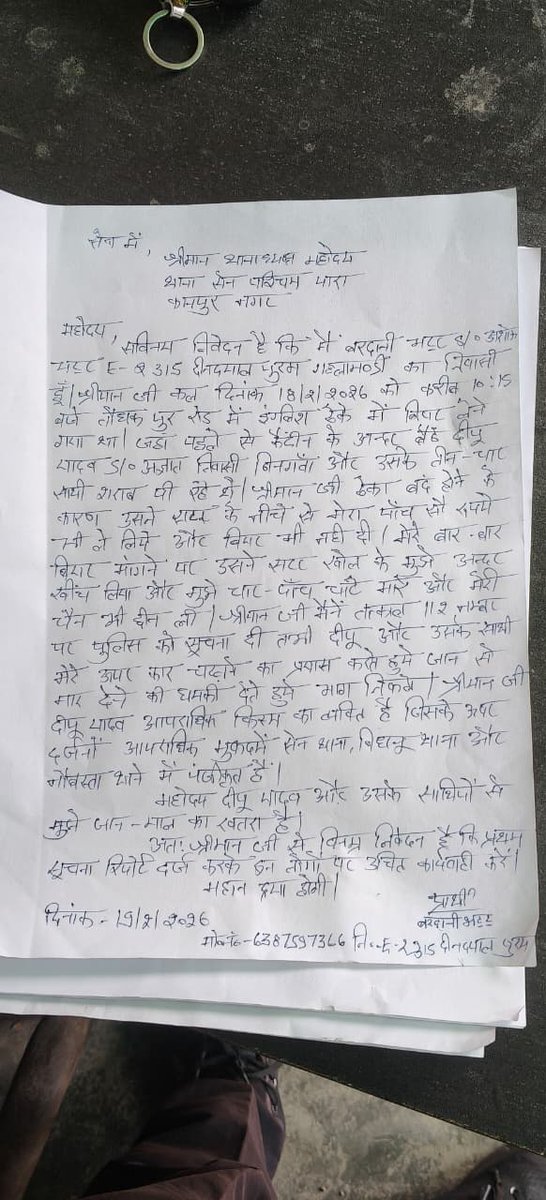 सेवा में,
श्रीमान थानाध्यक्ष महोदय
थाना सेन पश्चिम पारा
कानपुर नगर
महोदय,
सविनय निवेदन है कि मैं वरदानी भट्ट S/० अशोक
भट्ट E-2315 दीनदयाल पुरम गल्लामण्डी का निवासी
हूँ। श्रीमान जी कल दिनांक 18/2/2026 को करीब 10:15
बजे नौधक पुर रोड में इंगलिश ठेके में बियर लेने
गया था। जहां पहले से कैंटीन के अन्दर बैठे दीपू
यादव S/० अज्ञात निवासी बिनगवाँ और उसके तीन-चार
साथी शराब पी रहे थे। श्रीमान जी ठेका बंद होने के
कारण उसने सटर के नीचे से मेरा पाँच सौ रुपये
भी ले लिये और बियर भी नही दी। मेरे बार-बार
बियर मांगने पर उसने सटर खोल के मुझे अन्दर
खींच लिया और मुझे चार-पाँच चाँटे मारे और मेरी
चैन भी छीन ली। श्रीमान जी मैंने तत्काल 112 नम्बर
पर पुलिस को सूचना दी तभी दीपू और उसके साथी
मेरे ऊपर कार चढ़ाने का प्रयास करते हुये जान से
मार देने की धमकी देते हुये भाग निकले। श्रीमान जी
दीपू यादव आपराधिक किस्म का व्यक्ति है जिसके ऊपर
दर्जनों आपराधिक मुकदमें सेन थाना, बिधनू थाना और
नौबस्ता थाने में पंजीकृत हैं।
महोदय दीपू यादव और उसके साथियों से
मुझे जान-माल का खतरा है।
अतः श्रीमान जी से विनम्र निवेदन है कि प्रथम
सूचना रिपोर्ट दर्ज करके इन लोगों पर उचित कार्यवाही करें।
महान दया होगी।
प्रार्थी
दिनांक - 19/2/2026
वरदानी भट्ट
मो०नं०-6387597366 नि०-E-2315 दीनदयाल पुरम